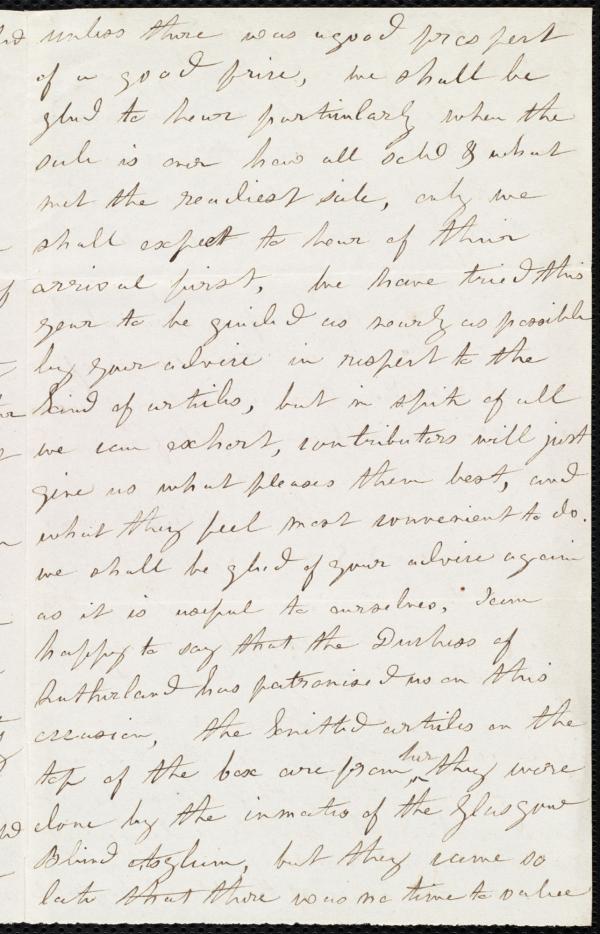 unless there was a good prospect
of a good price, we shall be
glad to hear particularly when the
sale is over how all sold & what
met the readiest sale, only we
shall expect to hear of their
arrival first, We have tried this
year to be guided as nearly as possible
by your advice in respect to the
kind of articles, but in spite of all
we can exhort, contributors will just
give us what pleases them best, and
what they feel most convenient to do.
we shall be glad of your advice again
as it is useful to ourselves, I am
happy to say that the Duchess of
Sutherland has patronised us on this
occasion, the knitted articles on the
top of the box are from her they were
done by the inmates of the Glasgow
Blind Asylum, but they came so
late that there was no time to value